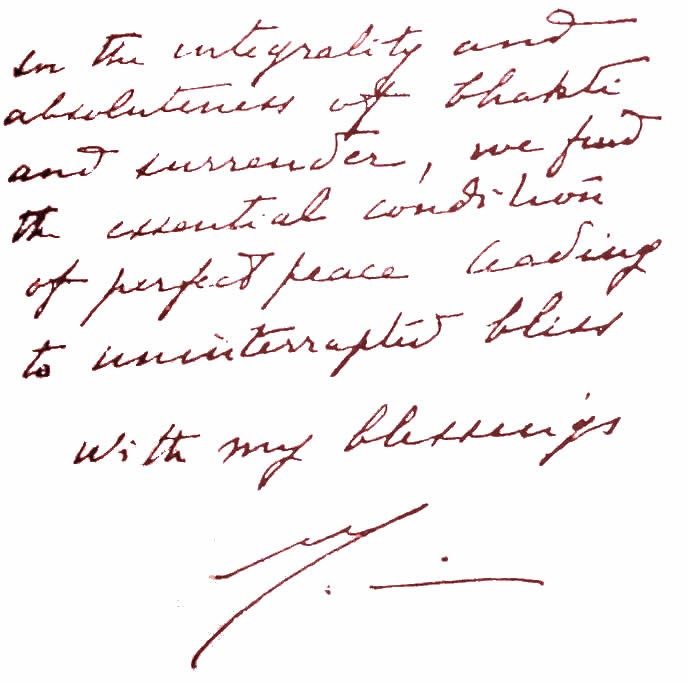 in the integrality and
absoluteness of bhakti
and surrender, we find
the essential condition
of perfect peace leading
to uninterrupted bliss
with my blessings